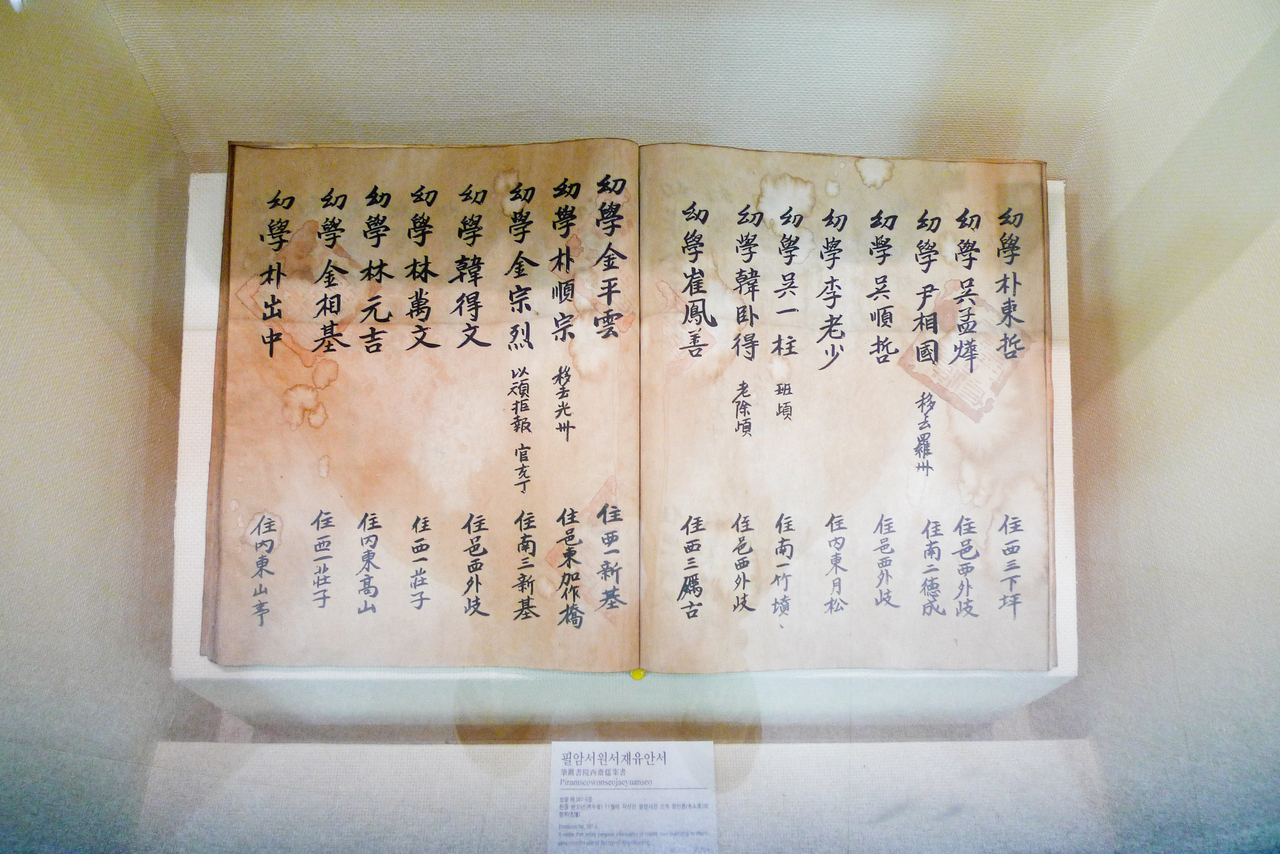 幼學朴東哲 住西三下坪
幼學吳孟燁 住邑西外岐
幼學尹相國 移去羅州 住南二德成
幼學吳順哲 住邑西外岐
幼學李老少 住內東月松
幼學吳一柱 班頉 住南一竹墳
幼學韓卧得 老除頉 住邑西外岐
幼學崔鳳善 住西三
幼學金平雲 住西一新基
幼學朴順宗 移去光州 住邑東加作橋
幼學金宗烈 以頑拒報 官充丁 住南三新基
幼學韓得文 住邑西外岐
幼學林萬文 住西一莊子
幼學林元吉 住內東高山
幼學金相基 住西一莊子
幼學朴出中 住內東山亭
필암서원서재유안서
筆巖書院西齋儒案書
Piramseowonseojaeyuanseo